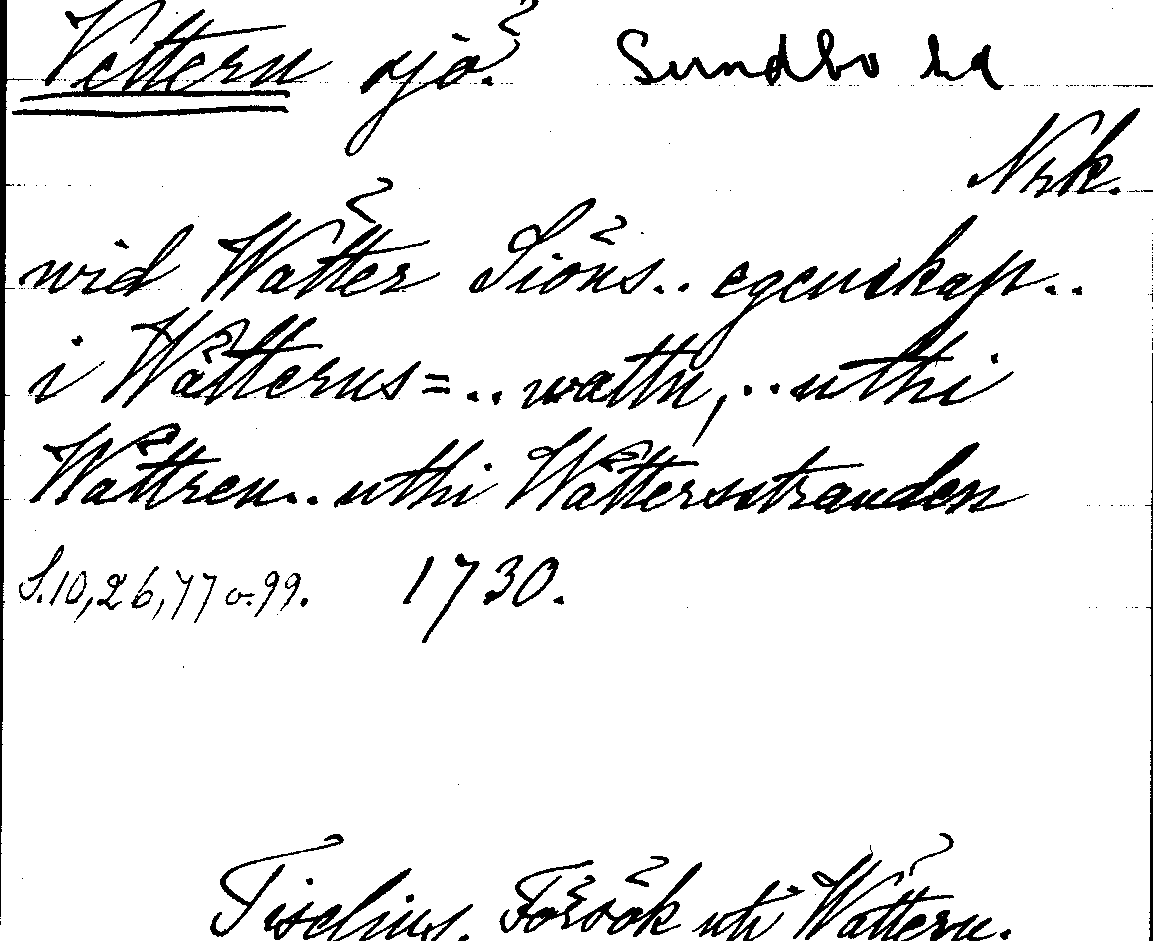 Vettern sjö. Sundbo hd
Nrk.
wid Wätter Siöns.. egenskap..
i Wätterns=.. wattn,.. uthi
Wättren.. uthi Wättersstranden
S. 10, 26, 77 o. 99. 1730.
Tiselius. Försök uti Wättern.